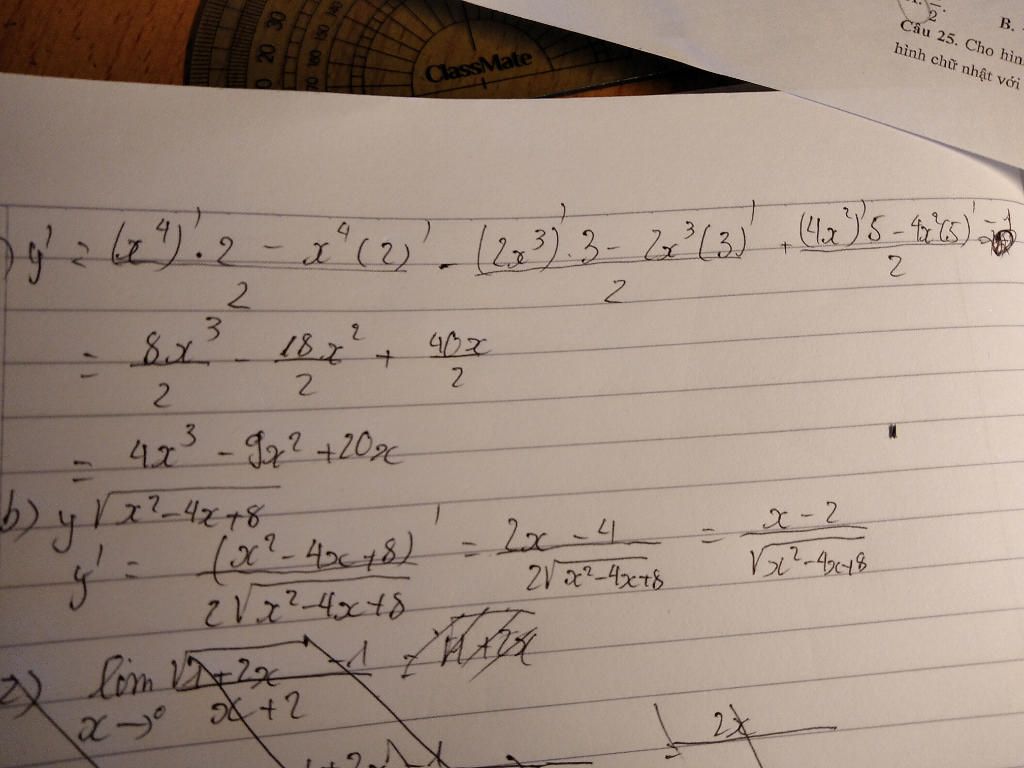 ClassMate
B.
Câu 25. Cho hìn
hình chữ nhật với
) y' = ((x⁴)'.2 - x⁴(2)')/2 - ((2x³)'.3 - 2x³(3)')/2 + ((4x²)'5 - 4x²(5)')/2 - 1
= 8x³/2 - 18x²/2 + 40x/2
= 4x³ - 9x² + 20x
b) y √(x²-4x+8)
y' = (x²-4x+8)'/(2√(x²-4x+8)) = (2x-4)/(2√(x²-4x+8)) = (x-2)/√(x²-4x+8)
2) lim x→0
x+2
2x